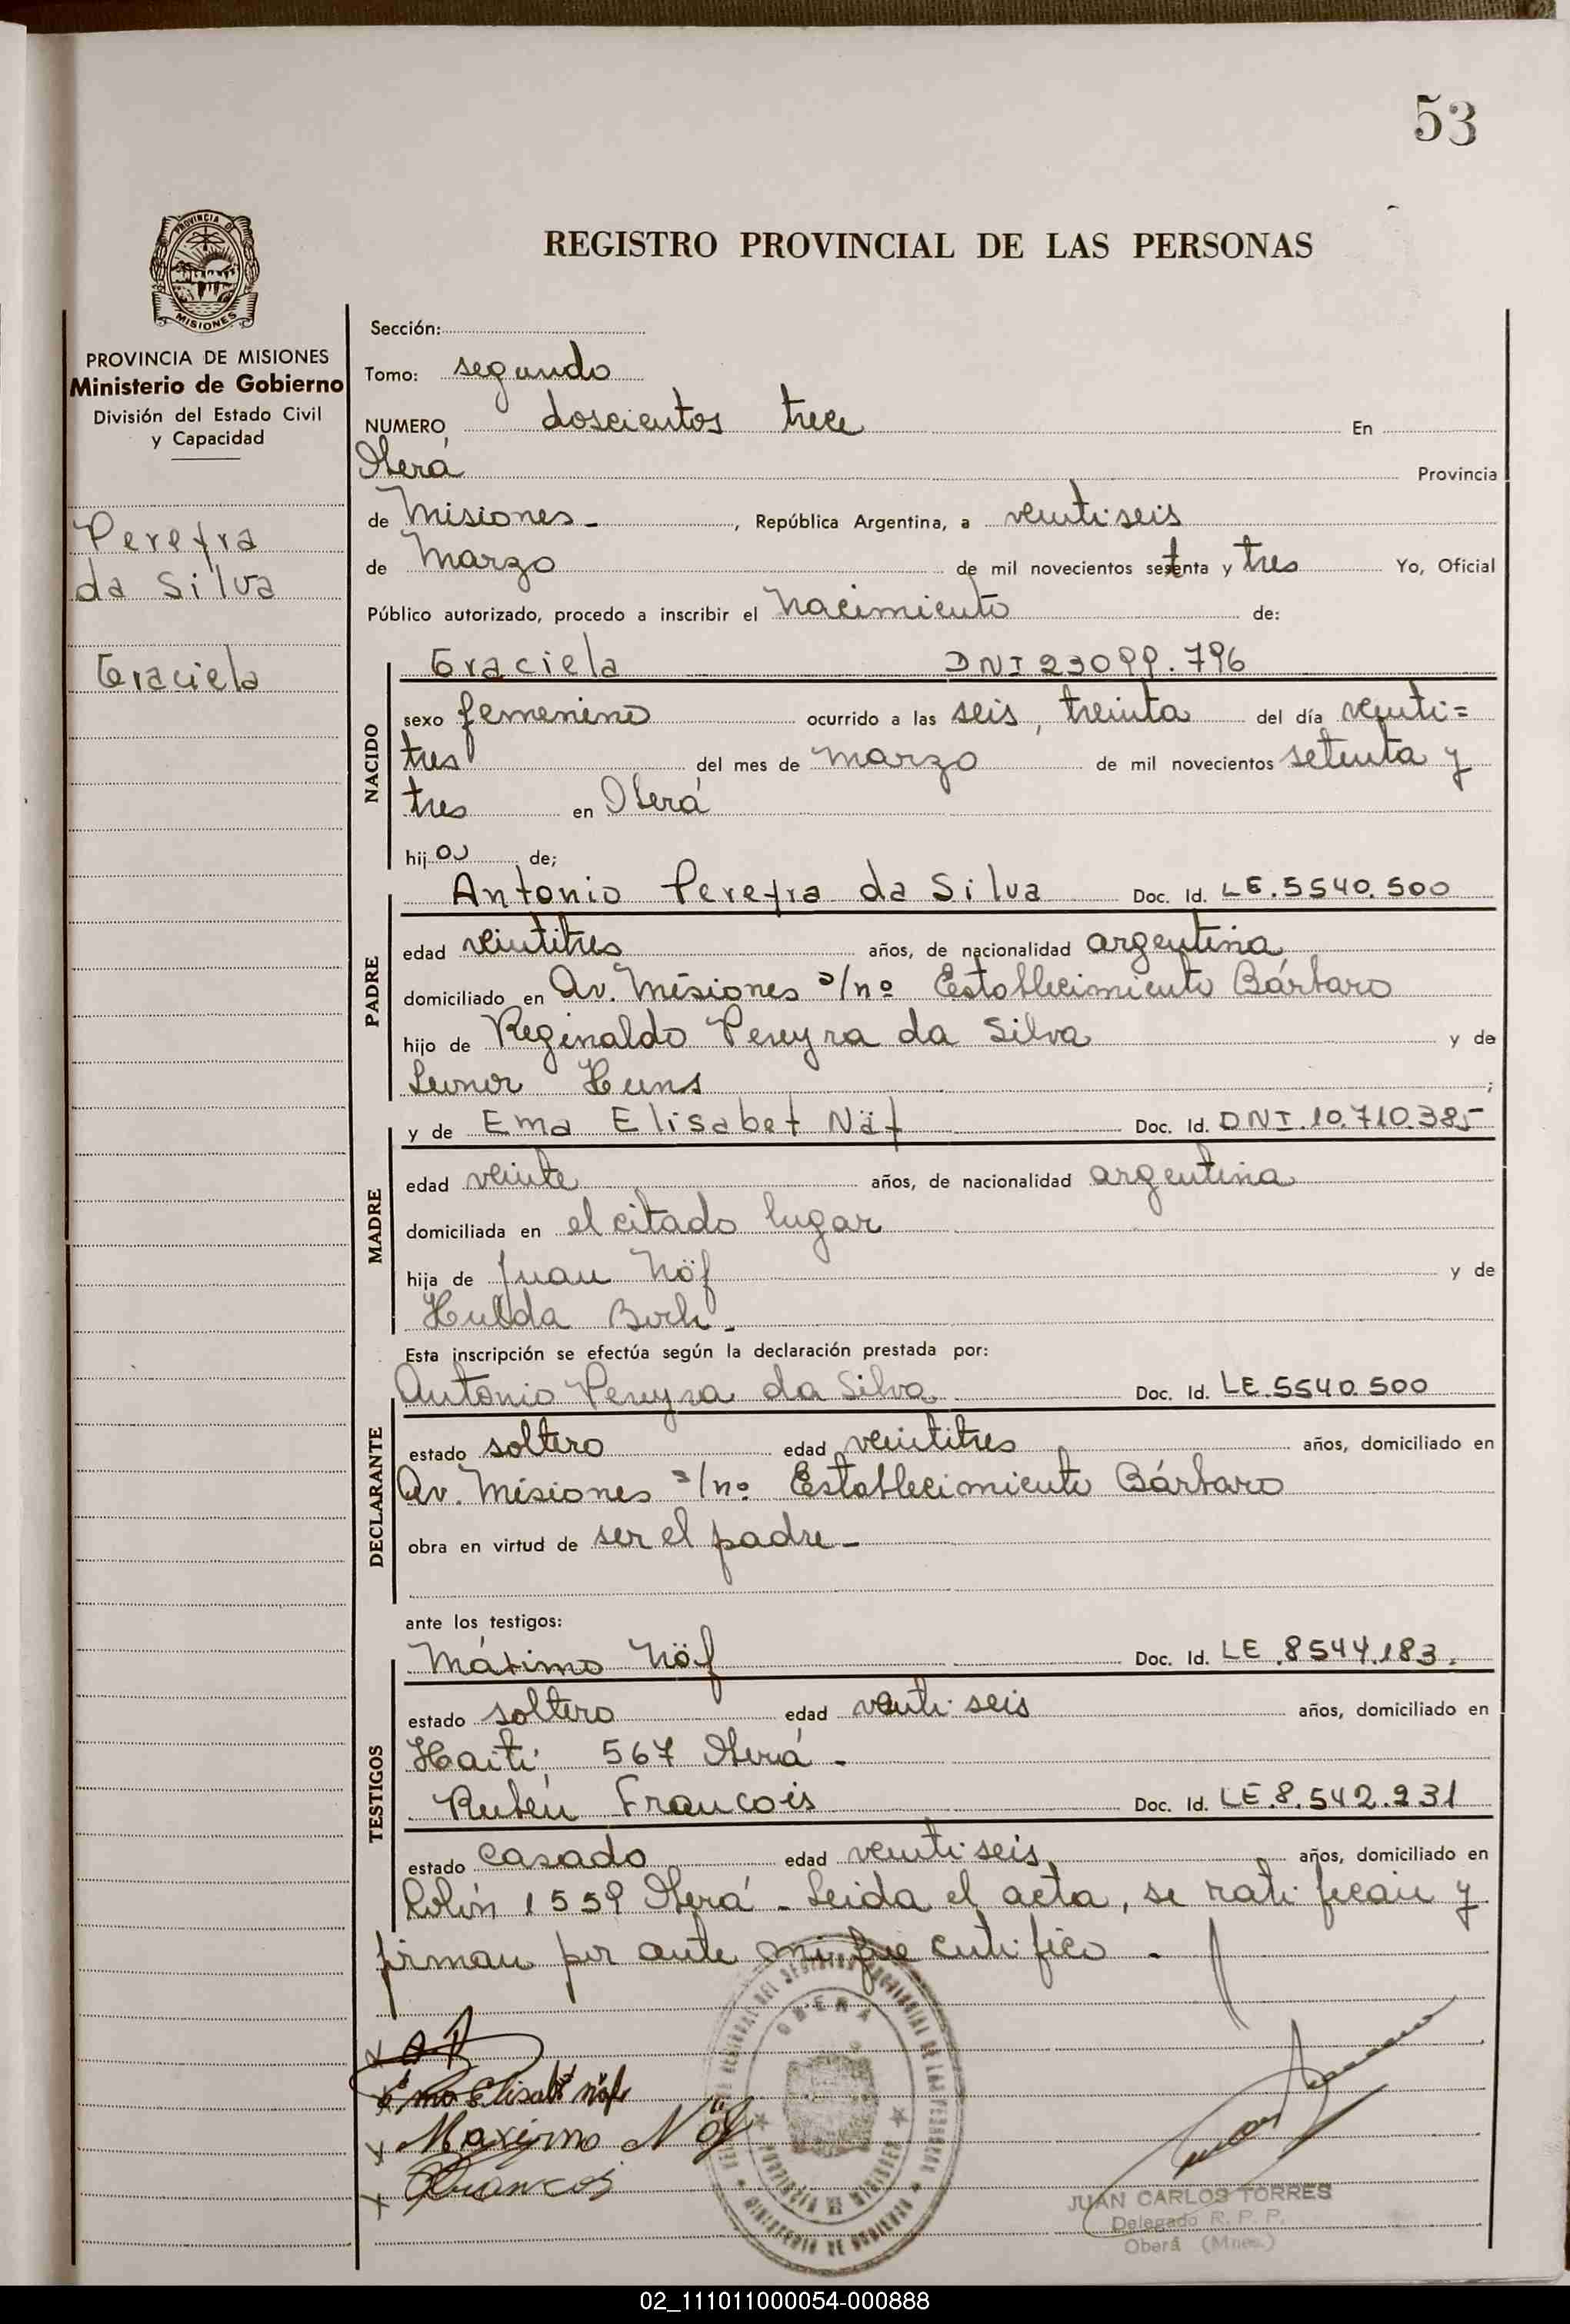 53
REGISTRO PROVINCIAL DE LAS PERSONAS
PROVINCIA DE MISIONES
Ministerio de Gobierno
División del Estado Civil
y Capacidad
Pereyra
da Silva
Graciela
Sección:
Tomo: segundo
NUMERO doscientos trece En
Oberá Provincia
de Misiones - , República Argentina, a veinti seis
de Marzo de mil novecientos setenta y tres Yo, Oficial
Público autorizado, procedo a inscribir el Nacimiento de:
NACIDO
Graciela DNI 23099.796
sexo femenino ocurrido a las seis, treinta del día veinti=
tres del mes de marzo de mil novecientos setenta y
tres en Oberá
hija de;
PADRE
Antonio Pereyra da Silva Doc. Id. LE.5540.500
edad veintitres años, de nacionalidad argentina
domiciliado en Av. Misiones s/nº Establecimiento Bárbaro
hijo de Reginaldo Pereyra da Silva y de
Leonor Huns ;
MADRE
y de Ema Elisabet Näf Doc. Id. DNI.10.710.385
edad veinte años, de nacionalidad argentina
domiciliada en el citado lugar
hija de Juan Näf y de
Hulda -
Esta inscripción se efectúa según la declaración prestada por:
DECLARANTE
Antonio Pereyra da Silva Doc. Id. LE.5540.500
estado soltero edad veintitres años, domiciliado en
Av. Misiones s/nº Establecimiento Bárbaro
obra en virtud de ser el padre -
ante los testigos:
TESTIGOS
Máximo Nöf Doc. Id. LE.8544.183.
estado soltero edad veinti seis años, domiciliado en
Haití, 567 Oberá -
Rubén Francois Doc. Id. LE.8.542.931
estado casado edad veinti seis años, domiciliado en
Colón 1559 Oberá - Leida el acta, se ratifican y
firman por ante mi que certifico -
Ema Elisabet Näf
Maximo Nöf
Francois
OBERA
PROVINCIA DE MISIONES
MINISTERIO DE GOBIERNO
JUAN CARLOS TORRES
Delegado R. P. P.
Oberá (Mnes.)
02_111011000054-000888